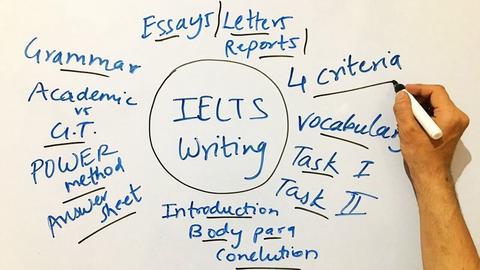 Essays | Letters
Reports |
Grammar
Academic
vs
G.T.
POWER
method
Answer
sheet
IELTS
Writing
4 criteria
Vocabulary
Task I
Task II
Introduction
Body para
Conclution